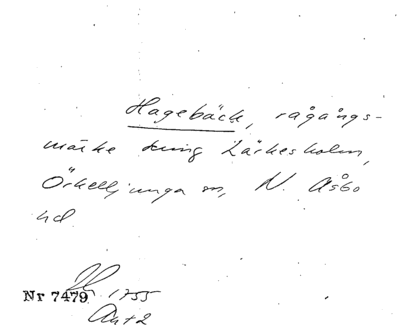 Hagebäck, rågångs-
märke kring Lärkesholm,
Örkelljunga sn, N. Åsbo
hd
Nr 7479 1755
Akt 2